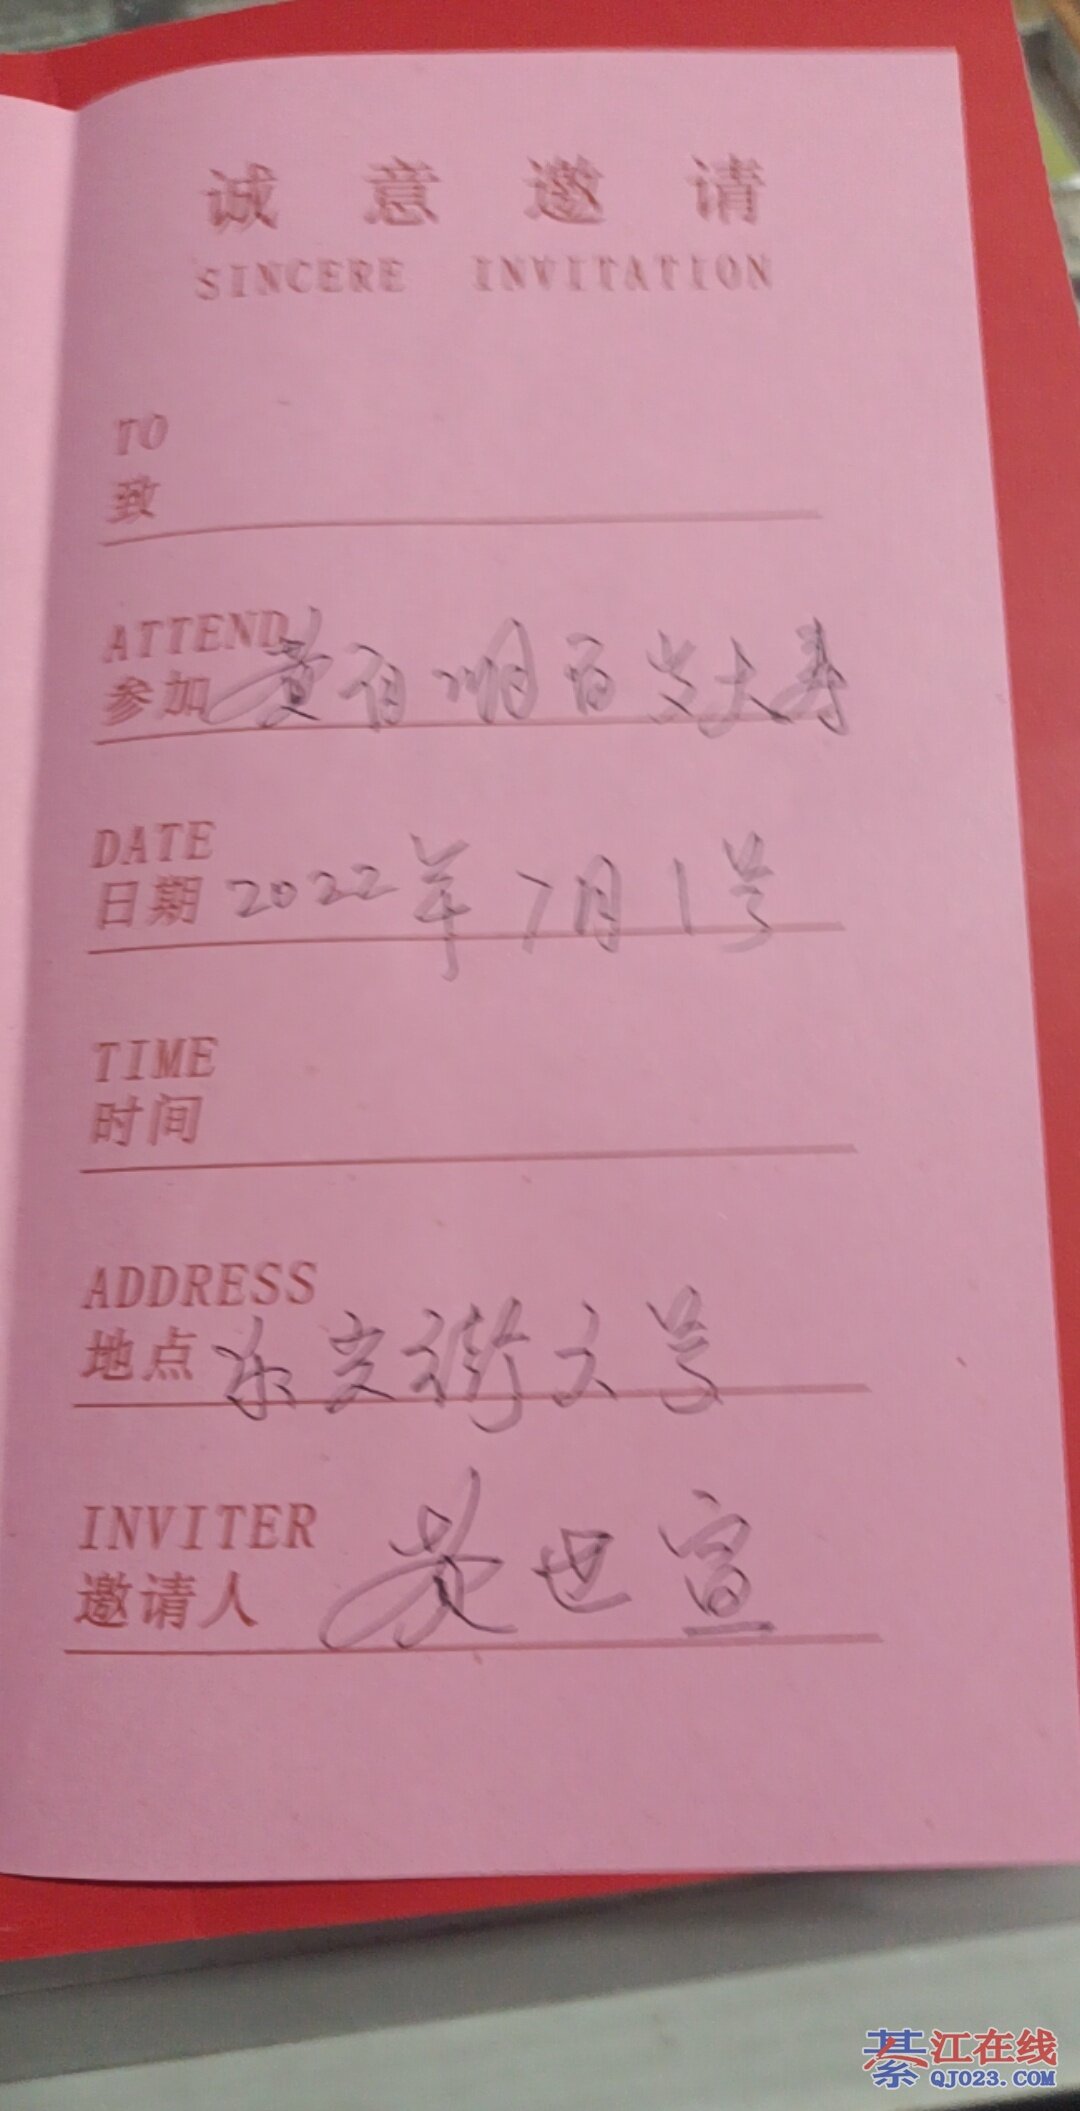 诚意邀请
SINCERE INVITATION
TO
致
ATTEND
参加 黄百明百岁大寿
DATE
日期 2022年7月1号
TIME
时间
ADDRESS
地点 街 号
INVITER
邀请人 黄世宣
綦江在线
QJ023.COM